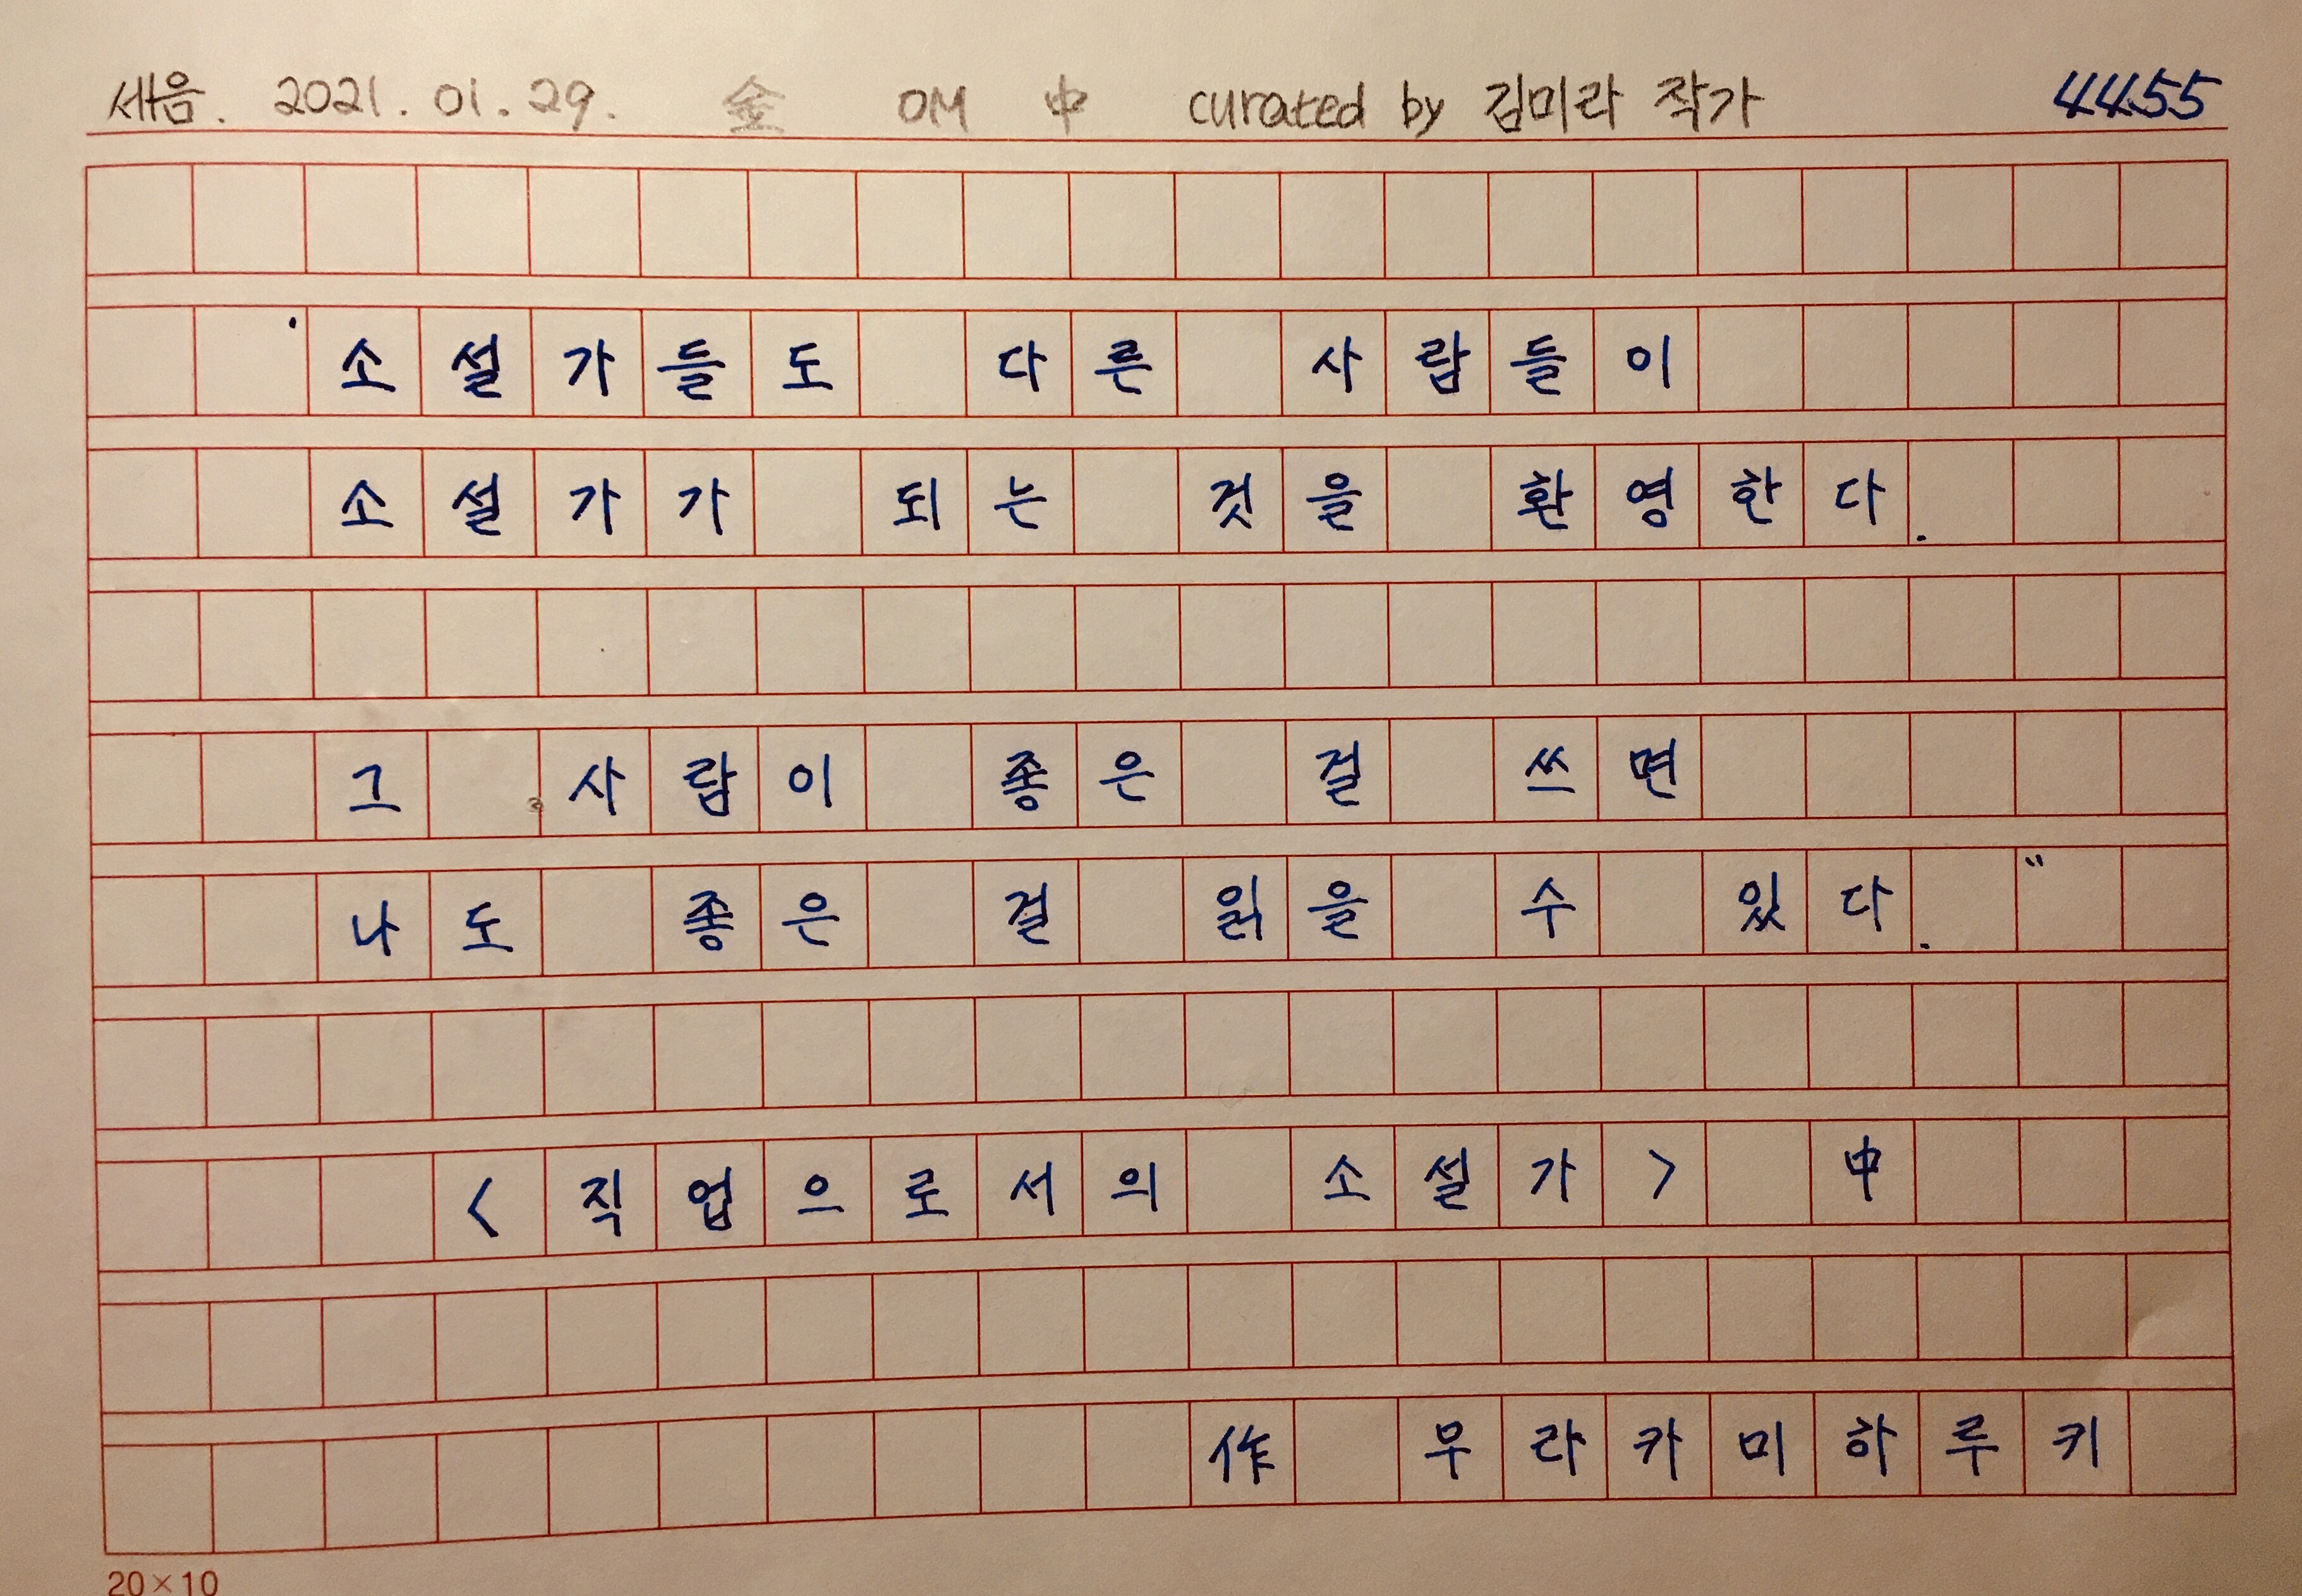 세음. 2021. 01. 29. 金 OM 中 curated by 김미라 작가 4455
'소설가들도 다른 사람들이
소설가가 되는 것을 환영한다.
그 사람이 좋은 걸 쓰면
나도 좋은 걸 읽을 수 있다."
<직업으로서의 소설가> 中
作 무라카미하루키
20×10